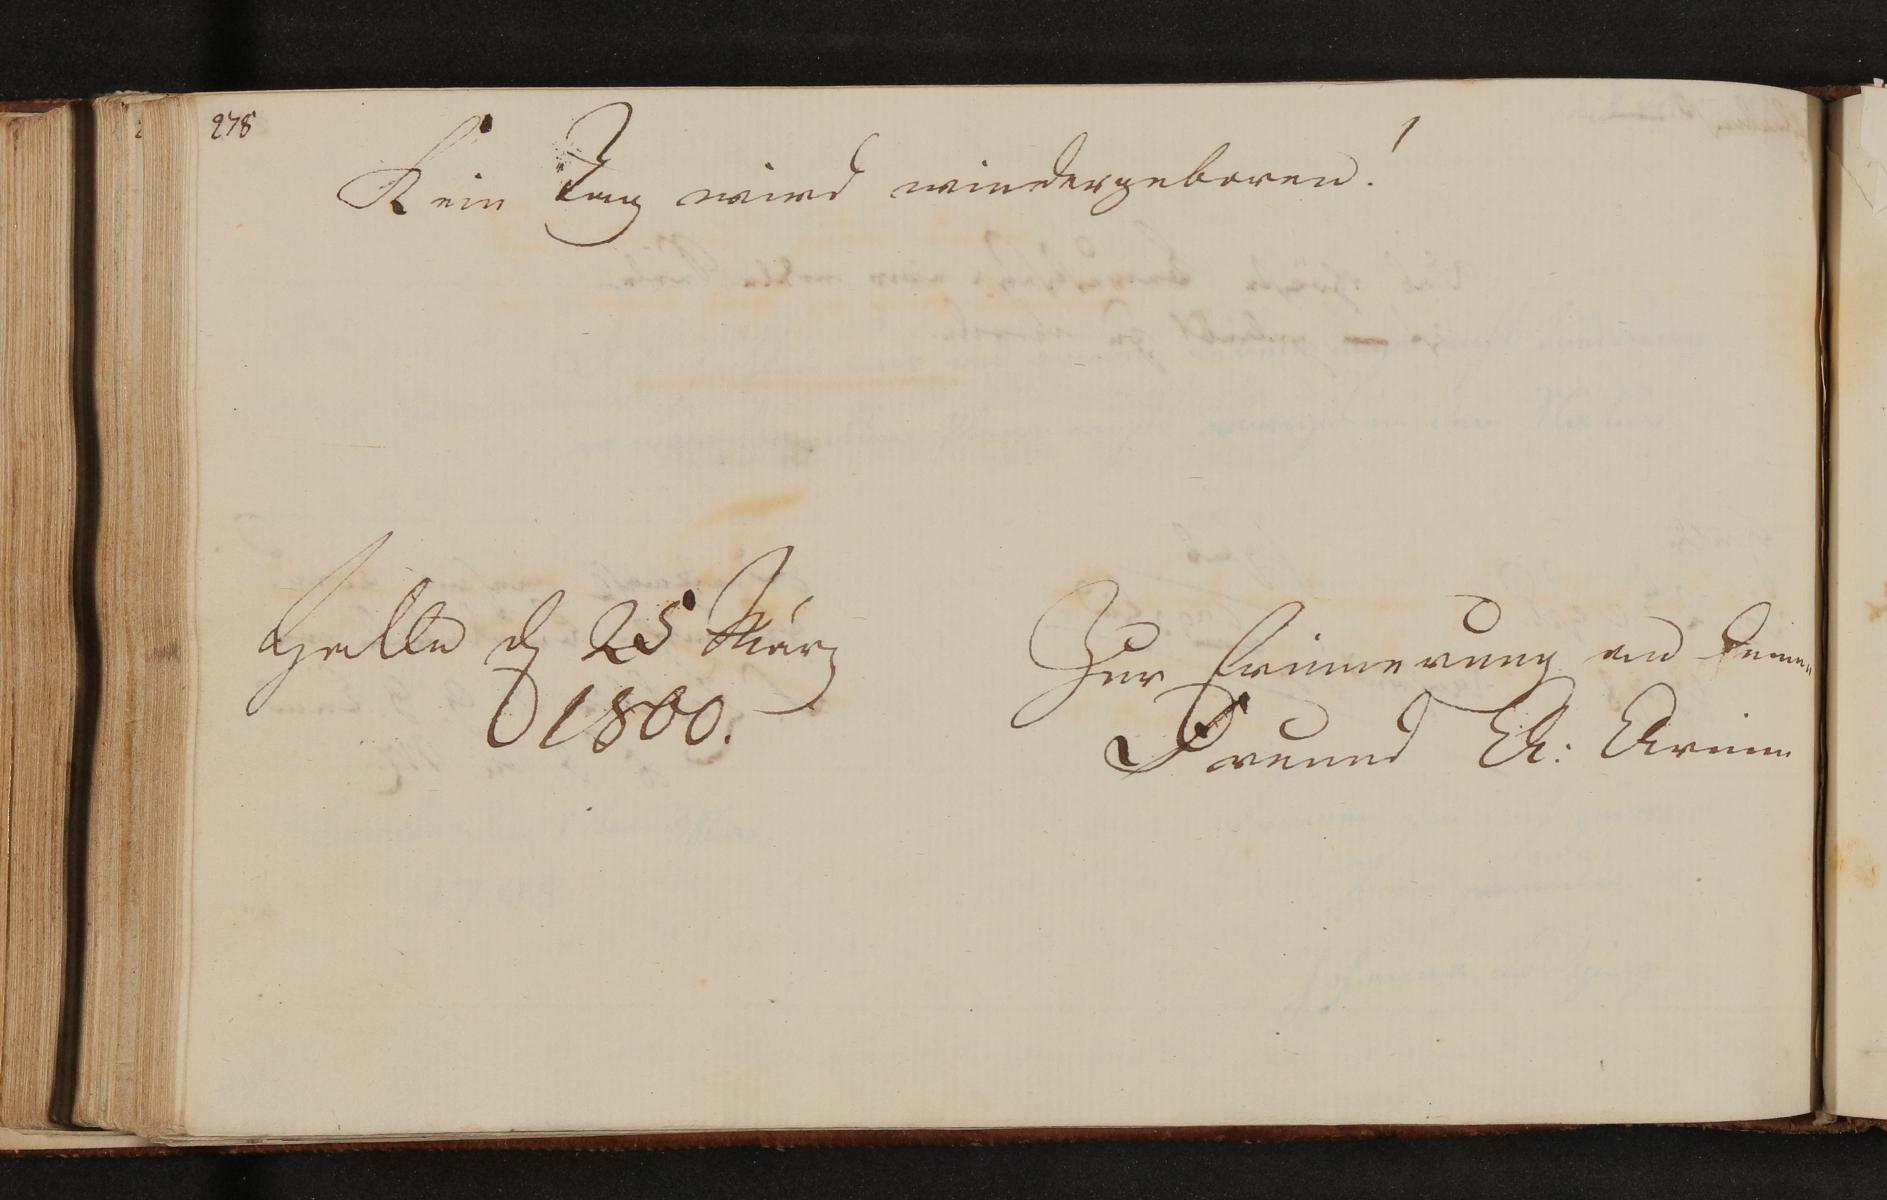 278
Kein Tag wird wiedergeboren!
Halle d 25 März
1800.
Zur Erinnerung an Deinen
Freund A: Arnim